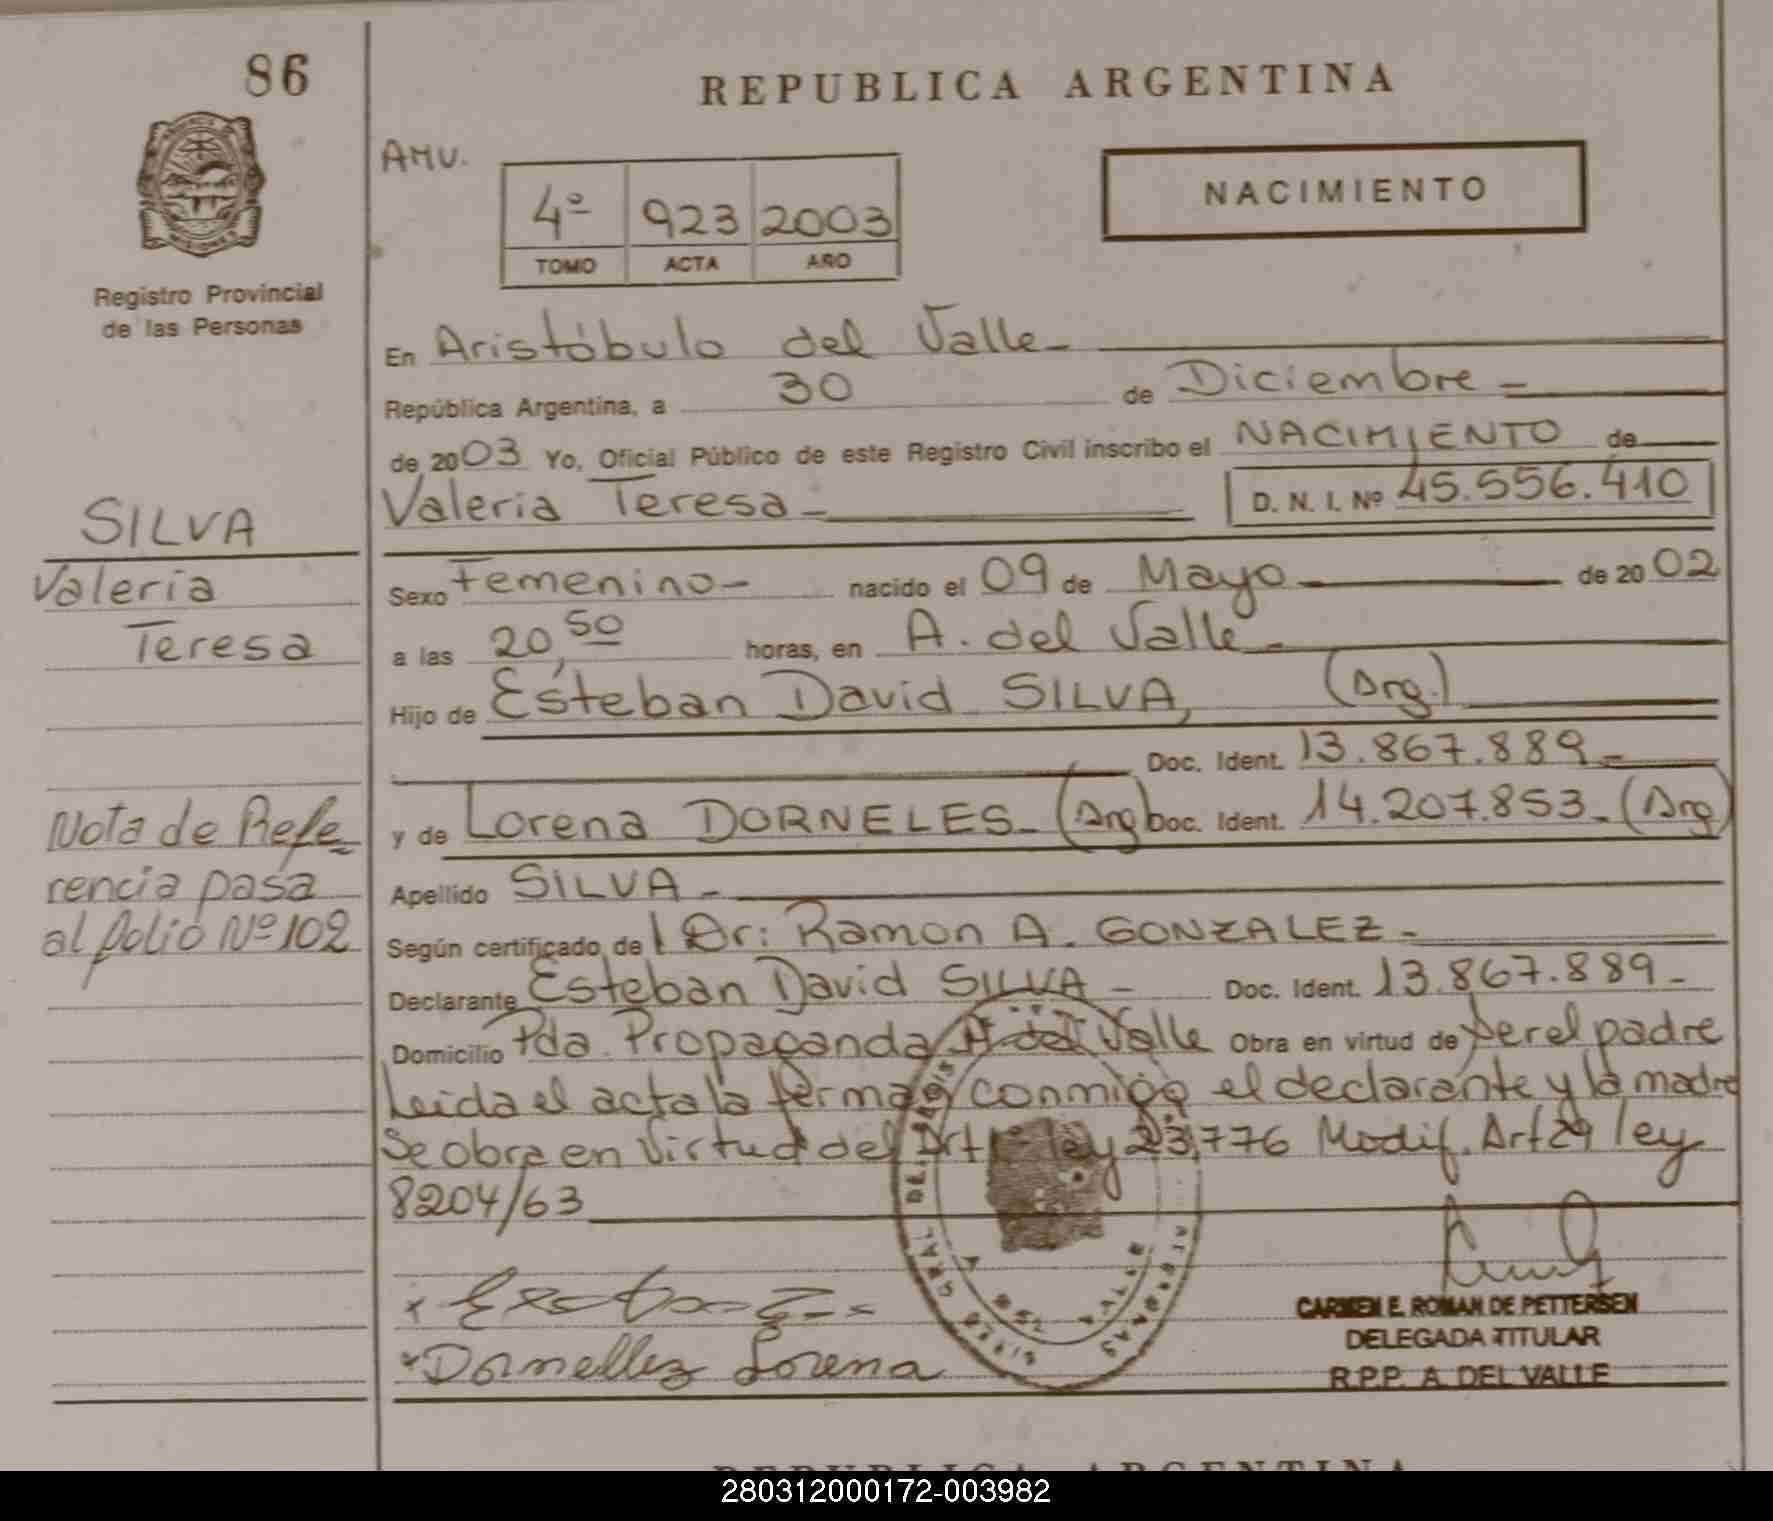 86
REPUBLICA ARGENTINA
AMU.
4º 923 2003
TOMO ACTA AÑO
NACIMIENTO
Registro Provincial
de las Personas
En Aristóbulo del Valle-
República Argentina, a 30 de Diciembre -
de 2003 Yo, Oficial Público de este Registro Civil inscribo el NACIMIENTO de
Valeria Teresa - D. N. I. Nº 45.556.410
SILVA
Valeria
Teresa
Sexo Femenino- nacido el 09 de Mayo - de 2002
a las 20,50 horas, en A. del Valle -
Hijo de Esteban David SILVA, (Arg.)
Doc. Ident. 13.867.889 -
y de Lorena DORNELES - (Arg) Doc. Ident. 14.207.853 - (Arg)
Nota de Refe
rencia pasa
al folio Nº 102
Apellido SILVA -
Según certificado de l Dr: Ramon A. GONZALEZ -
Declarante Esteban David SILVA - Doc. Ident. 13.867.889 -
Domicilio Pda. Propaganda A del Valle Obra en virtud de ser el padre
Leida el acta la firman conmigo el declarante y la madre
Se obra en Virtud del Art ley 23,776 Modif. Art 29 ley
8204/63
Dornellez Lorena
CARMEN E. ROMAN DE PETTERSEN
DELEGADA TITULAR
R.P.P. A. DEL VALLE
REPUBLICA ARGENTINA
280312000172-003982